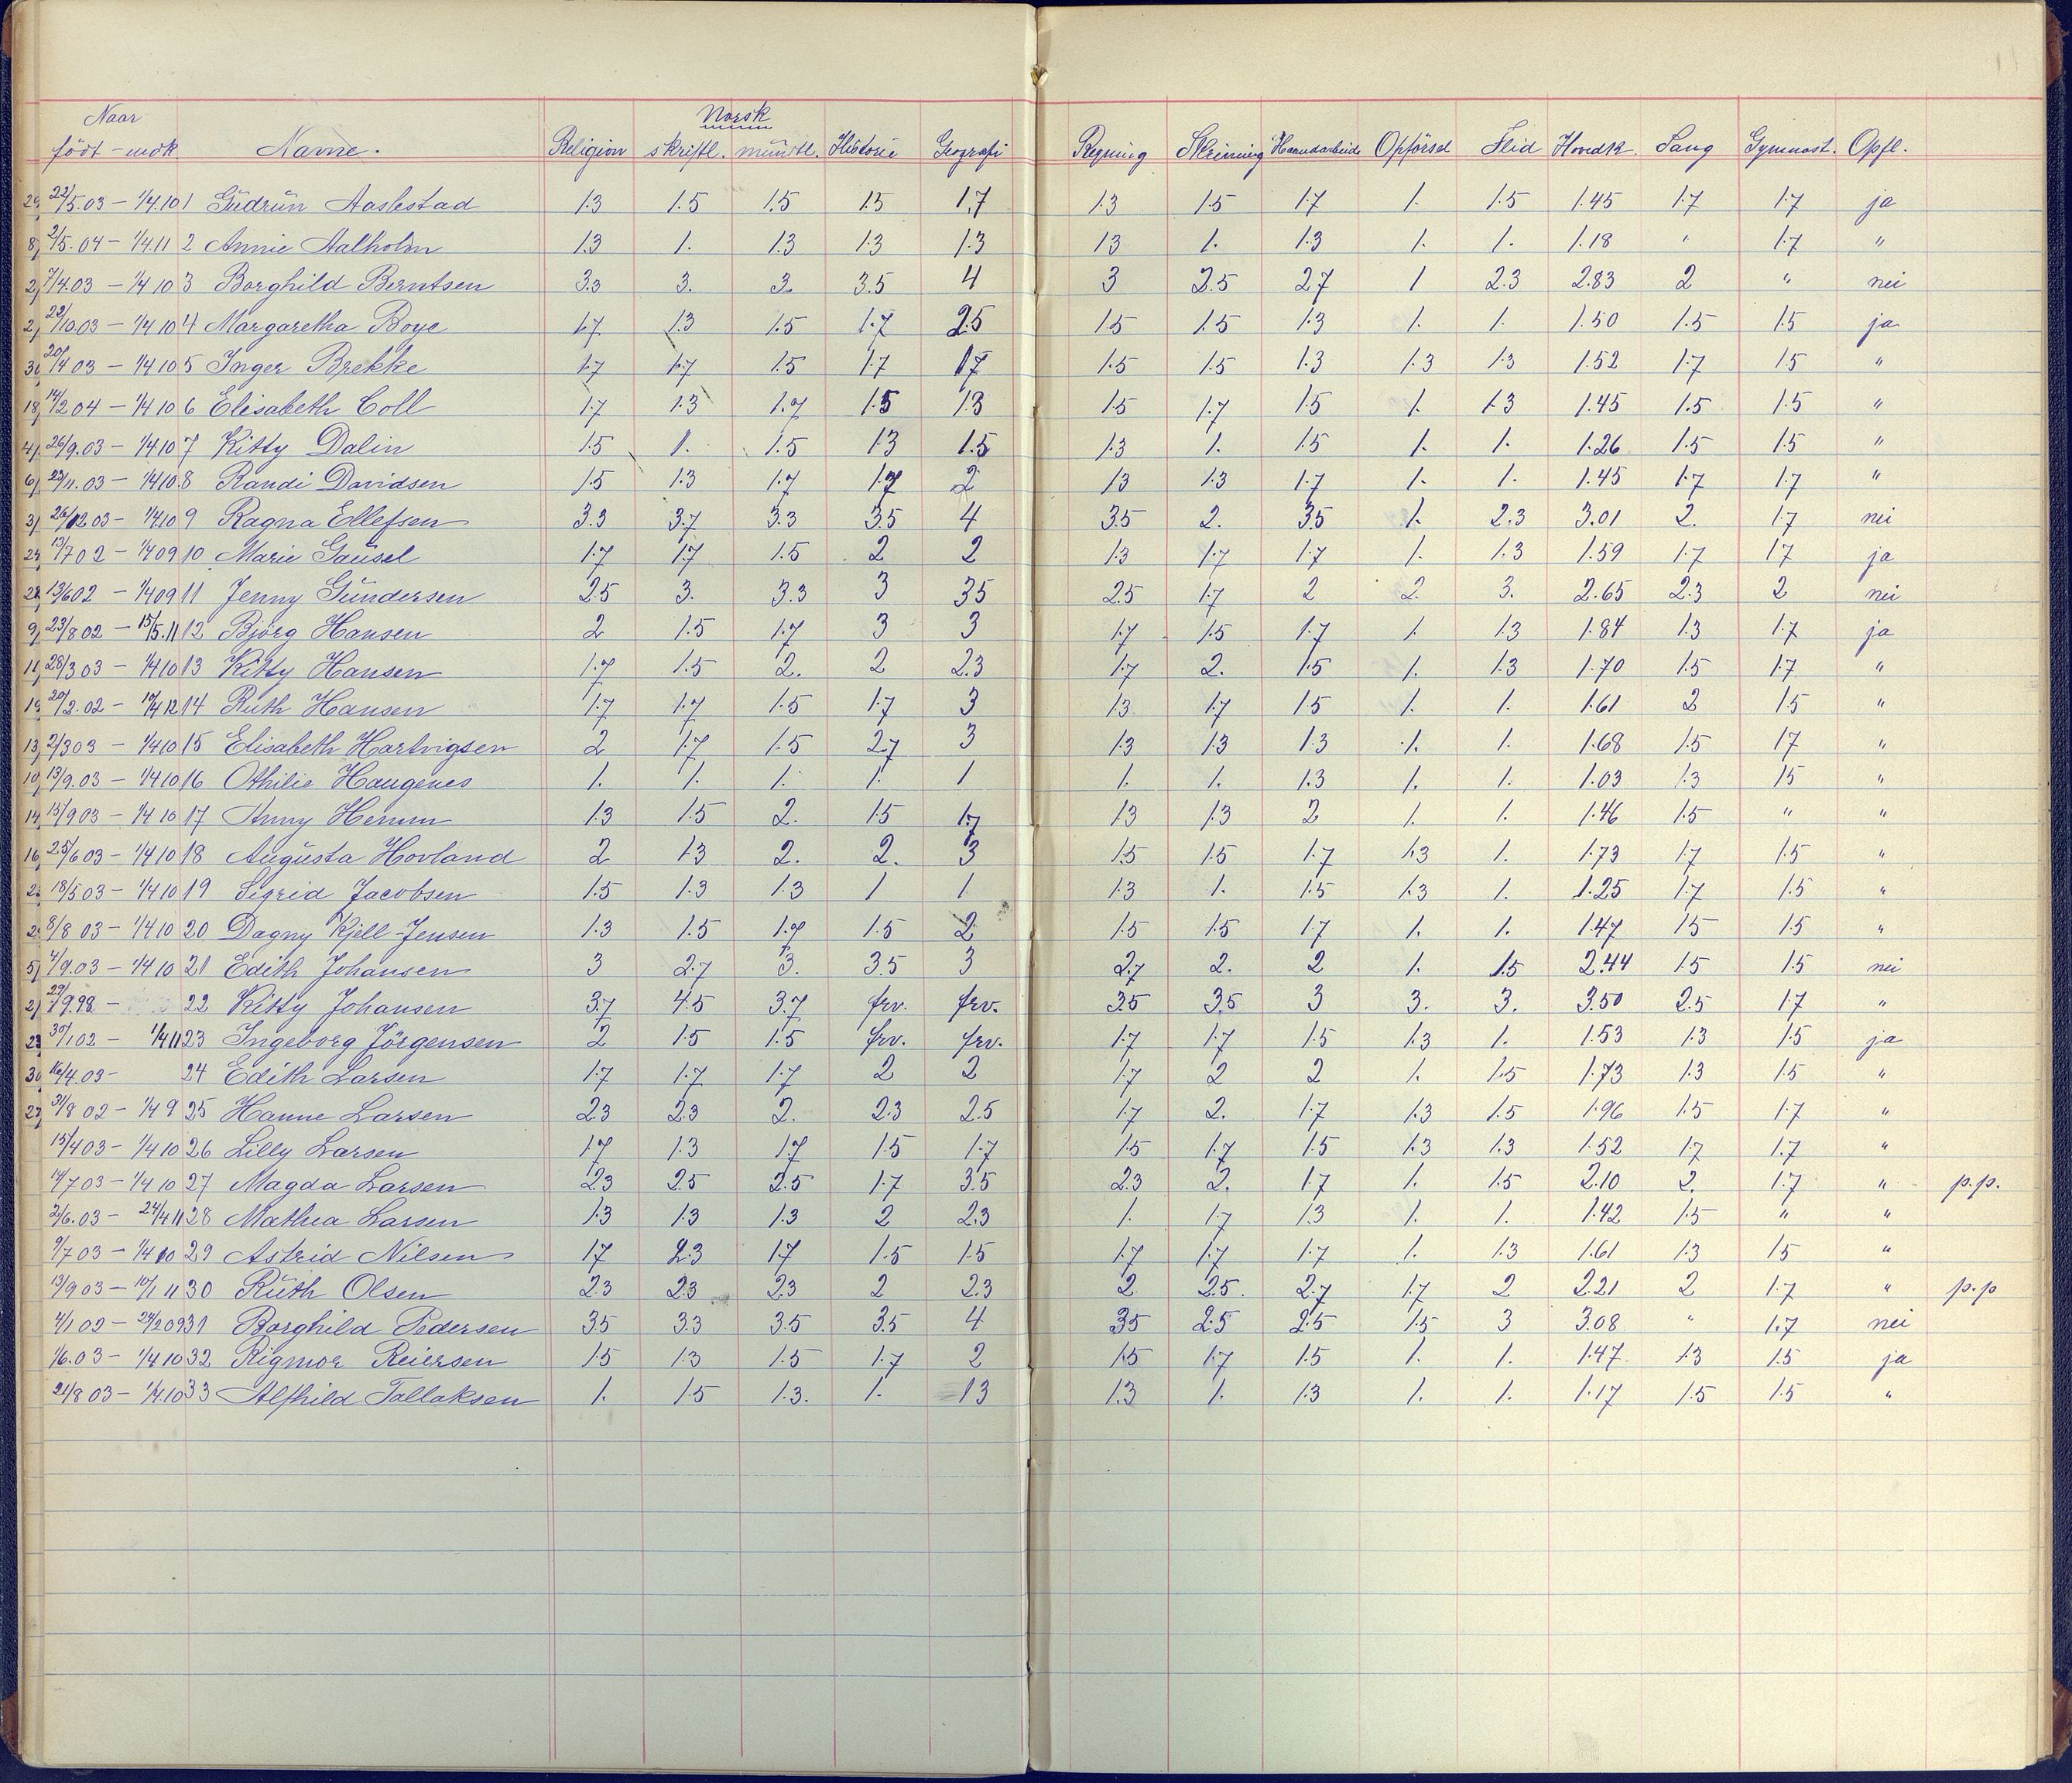 Naar Norsk
födt - indk. Navne. Religion skriftl. mündtl. Historie Geografi Regning Skrivning Haandarbeide Opförsel Flid Hovedk. Sang Gymnast. Opfl.
22/5.03 - 1/4.10 1 Güdrün Aaslestad 1.3 1.5 1.5 1.5 1.7 1.3 1.5 1.7 1. 1.5 1.45 1.7 1.7 ja
8, 2/5.04 - 1/4.11 2 Annie Aalholm 1.3 1. 1.3 1.3 1.3 1.3 1. 1.3 1. 1. 1.18 " 1.7 "
2, 7/4.03 - 1/4 10 3 Borghild Berntsen 3.3 3. 3. 3.5 4 3 2.5 2.7 1 2.3 2.83 2 " nei
2, 22/10.03 - 1/4 10 4 Margaretha Boye 1.7 1.3 1.5 1.7 2.5 1.5 1.5 1.3 1. 1. 1.50 1.5 1.5 ja
20/4 03 - 1/4 10 5 Inger Brekke 1.7 1.7 1.5 1.7 1.7 1.5 1.5 1.3 1.3 1.3 1.52 1.7 1.5 "
18, 14/2 04 - 1/4 10 6 Elisabeth Coll 1.7 1.3 1.7 1.5 1.3 1.5 1.7 1.5 1. 1.3 1.45 1.5 1.5 "
4, 26/9.03 - 1/4 10 7 Kitty Dalin 1.5 1. 1.5 1.3 1.5 1.3 1. 1.5 1. 1. 1.26 1.5 1.5 "
6, 23/11.03 - 1/4 10 8 Randi Davidsen 1.5 1.3 1.7 1.7 2 1.3 1.3 1.7 1. 1. 1.45 1.7 1.7 "
3, 26/12 03 - 1/4 10 9 Ragna Ellefsen 3.3 3.7 3.3 3.5 4 3.5 2. 3.5 1. 2.3 3.01 2. 1.7 nei
13/7 02 - 1/4 09 10 Marie Gausel 1.7 1.7 1.5 2 2 1.3 1.7 1.7 1. 1.3 1.59 1.7 1.7 ja
13/6 02 - 1/4 09 11 Jenny Gündersen 2.5 3. 3.3 3 3.5 2.5 1.7 2 2. 3. 2.65 2.3 2 nei
9, 23/8 02 - 15/5.11 12 Björg Hansen 2 1.5 1.7 3 3 1.7 1.5 1.7 1. 1.3 1.84 1.3 1.7 ja
11, 28/3 03 - 1/4 10 13 Kitty Hansen 1.7 1.5 2. 2 2.3 1.7 2. 1.5 1. 1.3 1.70 1.5 1.7 "
20/2.02 - 10/4 12 14 Ruth Hansen 1.7 1.7 1.5 1.7 3 1.3 1.7 1.5 1. 1. 1.61 2 1.5 "
13, 2/3 03 - 1/4 10 15 Elisabeth Hartvigsen 2 1.7 1.5 2.7 3 1.3 1.3 1.3 1. 1. 1.68 1.5 1.7 "
10, 13/9.03 - 1/4 10 16 Othilie Haugenes 1. 1. 1. 1. 1 1. 1. 1.3 1. 1. 1.03 1.3 1.5 "
14, 15/9 03 - 1/4 10 17 Anny Hemm 1.3 1.5 2. 1.5 1.7 1.3 1.3 2 1. 1. 1.46 1.5 " "
16, 25/6 03 - 1/4 10 18 Augüsta Hovland 2 1.3 2. 2. 3 1.5 1.5 1.7 1.3 1. 1.73 1.7 1.5 "
18/5 03 - 1/4 10 19 Sigrid Jacobsen 1.5 1.3 1.3 1 1 1.3 1. 1.5 1.3 1. 1.25 1.7 1.5 "
8/8 03 - 1/4 10 20 Dagny Kjell-Jensen 1.3 1.5 1.7 1.5 2 1.5 1.5 1.7 1. 1. 1.47 1.5 1.5 "
5, 4/9.03 - 1/4 10 21 Edith Johansen 3 2.7 3. 3.5 3 2.7 2. 2 1. 1.5 2.44 1.5 1.5 nei
29/9.98 - 22 Kitty Johansen 3.7 4.5 3.7 frv. frv. 3.5 3.5 3 3. 3. 3.50 2.5 1.7 "
30/1 02 - 1/4 11 23 Ingeborg Jörgensen 2 1.5 1.5 frv. frv. 1.7 1.7 1.5 1.3 1. 1.53 1.3 1.5 ja
16/4.03 - 24 Edith Larsen 1.7 1.7 1.7 2 2 1.7 2 2 1. 1.5 1.73 1.3 1.5 "
31/8 02 - 1/4 9 25 Hanne Larsen 2.3 2.3 2. 2.3 2.5 1.7 2. 1.7 1.3 1.5 1.96 1.5 1.7 "
15/4 03 - 1/4 10 26 Lilly Larsen 1.7 1.3 1.7 1.5 1.7 1.5 1.7 1.5 1.3 1.3 1.52 1.7 1.7 "
14/7 03 - 1/4 10 27 Magda Larsen 2.3 2.5 2.5 1.7 3.5 2.3 2. 1.7 1. 1.5 2.10 2. 1.7 " p.p.
2/6.03 - 24/4 11 28 Mathea Larsen 1.3 1.3 1.3 2 2.3 1. 1.7 1.3 1. 1. 1.42 1.5 " "
9/7 03 - 1/4 10 29 Astrid Nilsen 1.7 2.3 1.7 1.5 1.5 1.7 1.7 1.7 1. 1.3 1.61 1.3 1.5 "
13/9 03 - 10/1 11 30 Rüth Olsen 2.3 2.3 2.3 2 2.3 2 2.5. 2.7 1.7 2 2.21 2 1.7 " p.p
4/1 02 - 24/2 09 31 Borghild Pedersen 3.5 3.3 3.5 3.5 4 3.5 2.5 2.5 1.5 3 3.08 " 1.7 nei
1/6.03 - 1/4 10 32 Rigmor Reiersen 1.5 1.3 1.5 1.7 2 1.5 1.7 1.5 1. 1. 1.47 1.3 1.5 ja
21/8 03 - 1/4.10 33 Alfhild Tallaksen 1. 1.5 1.3. 1. 1.3 1.3 1. 1.3 1. 1. 1.17 1.5 1.5 "